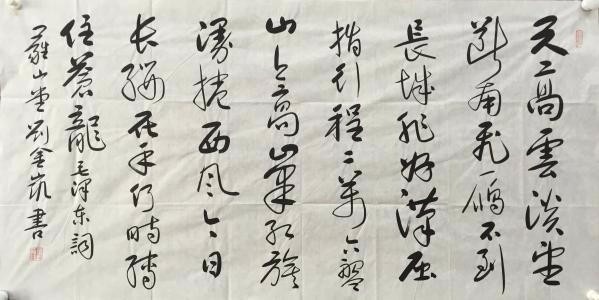 天高雲淡望
斷南飛雁不到
長城非好漢屈
指行程二萬六盤
山上高峯紅旗
漫捲西风今日
长纓在手何時縛
住蒼龍 毛澤東詞
羅山 劉金凱書